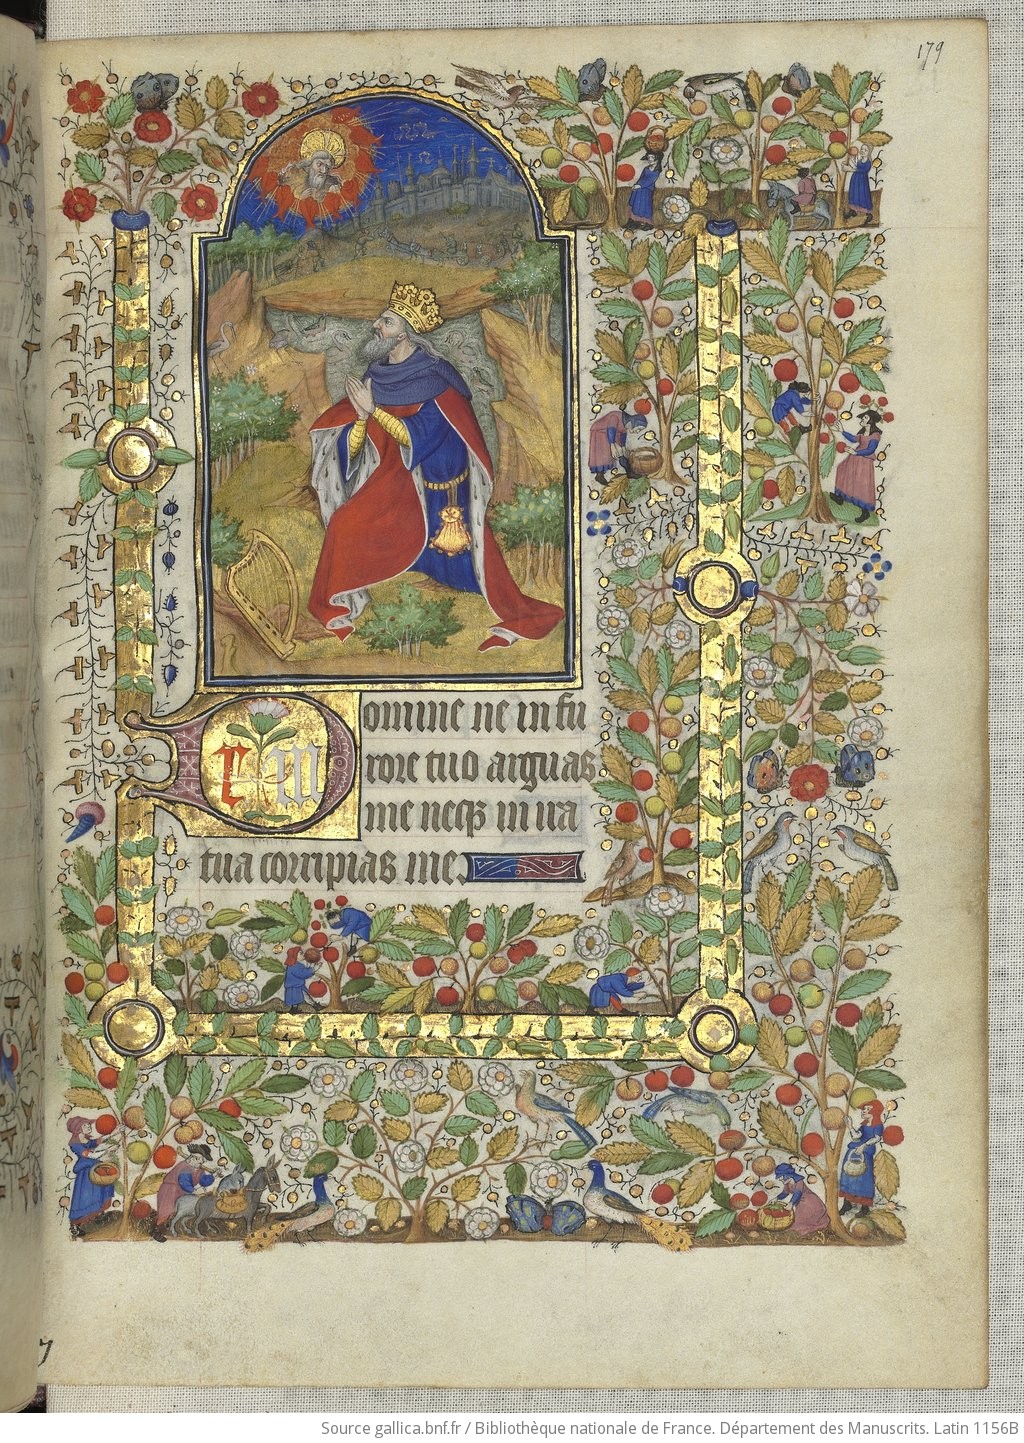 179
Domine ne in fu
rore tuo arguas
me neqꝫ in ira
tua corripias me.
Source gallica.bnf.fr / Bibliothèque nationale de France. Département des Manuscrits. Latin 1156B